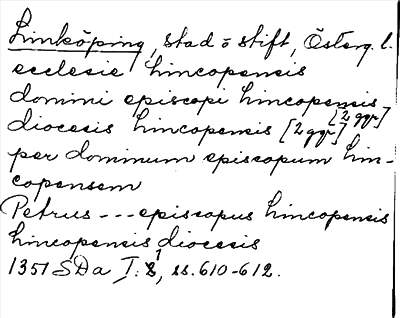 Linköping, stad o stift, Österg. l.
ecclesie lincopensis
domini episcopi lincopensis [2 ggr]
diocesis lincopensis [2 ggr]
per dominum episcopum lin-
copensem
Petrus --- episcopus lincopensis
lincopensis diocesis
1351 SDa I: 1, ss. 610-612.